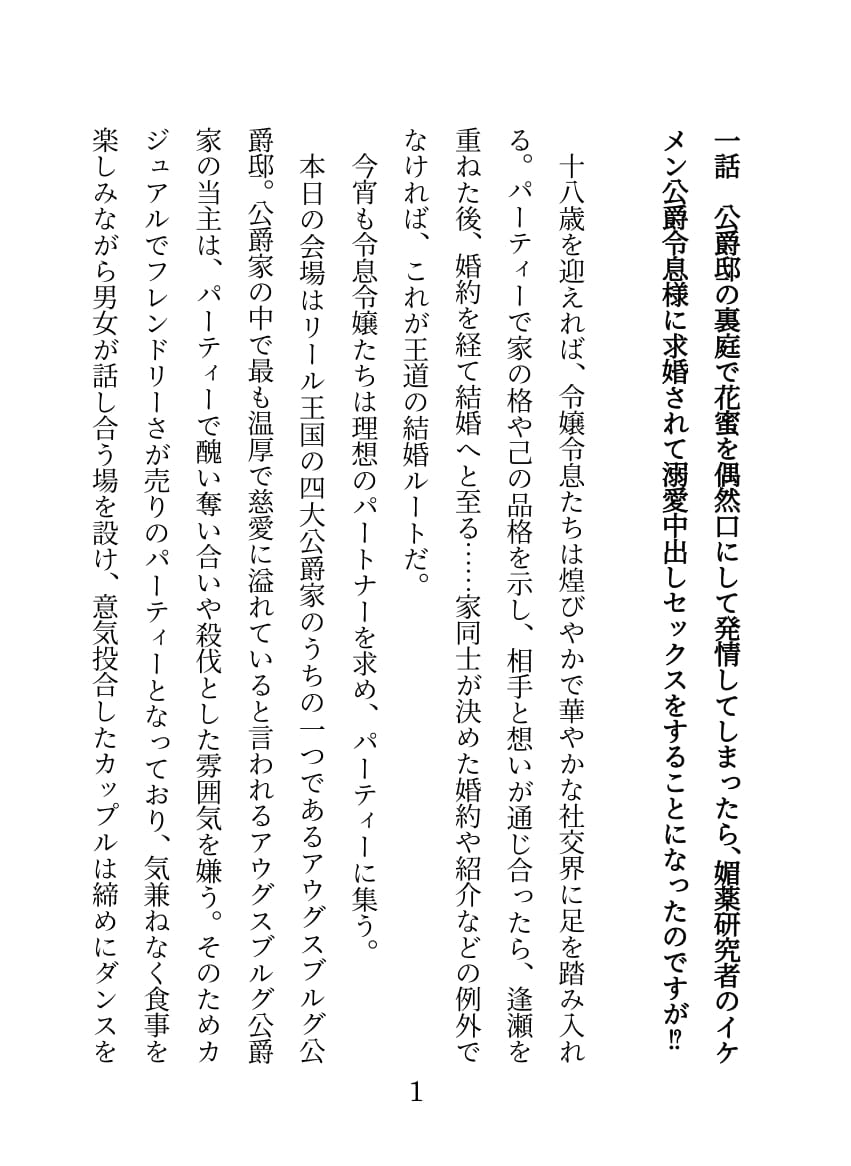 一話　公爵邸の裏庭で花蜜を偶然口にして発情してしまったら、媚薬研究者のイケ
メン公爵令息様に求婚されて溺愛中出しセックスをすることになったのですが⁉
　十八歳を迎えれば、令嬢令息たちは煌びやかで華やかな社交界に足を踏み入れ
る。パーティーで家の格や己の品格を示し、相手と想いが通じ合ったら、逢瀬を
重ねた後、婚約を経て結婚へと至る……家同士が決めた婚約や紹介などの例外で
なければ、これが王道の結婚ルートだ。
　今宵も令息令嬢たちは理想のパートナーを求め、パーティーに集う。
　本日の会場はリール王国の四大公爵家のうちの一つであるアウグスブルグ公
爵邸。公爵家の中で最も温厚で慈愛に溢れていると言われるアウグスブルグ公爵
家の当主は、パーティーで醜い奪い合いや殺伐とした雰囲気を嫌う。そのためカ
ジュアルでフレンドリーさが売りのパーティーとなっており、気兼ねなく食事を
楽しみながら男女が話し合う場を設け、意気投合したカップルは締めにダンスを
1